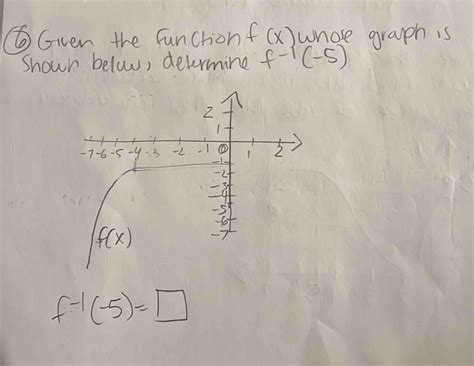 ⑥ Given the function f (x) whose graph is
shown below, determine f⁻¹(-5)
2
1
-7 -6 -5 -4 -3 -2 -1 0 1 2
-1
-2
-3
-4
-5
-6
-7
f(x)
f⁻¹(-5) = □